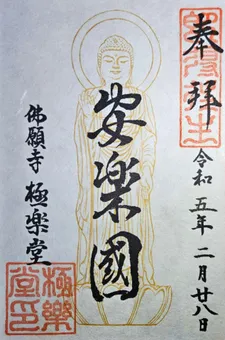 奉拜
令和五年二月廿八日
安楽國
佛願寺 極楽堂
極樂堂印